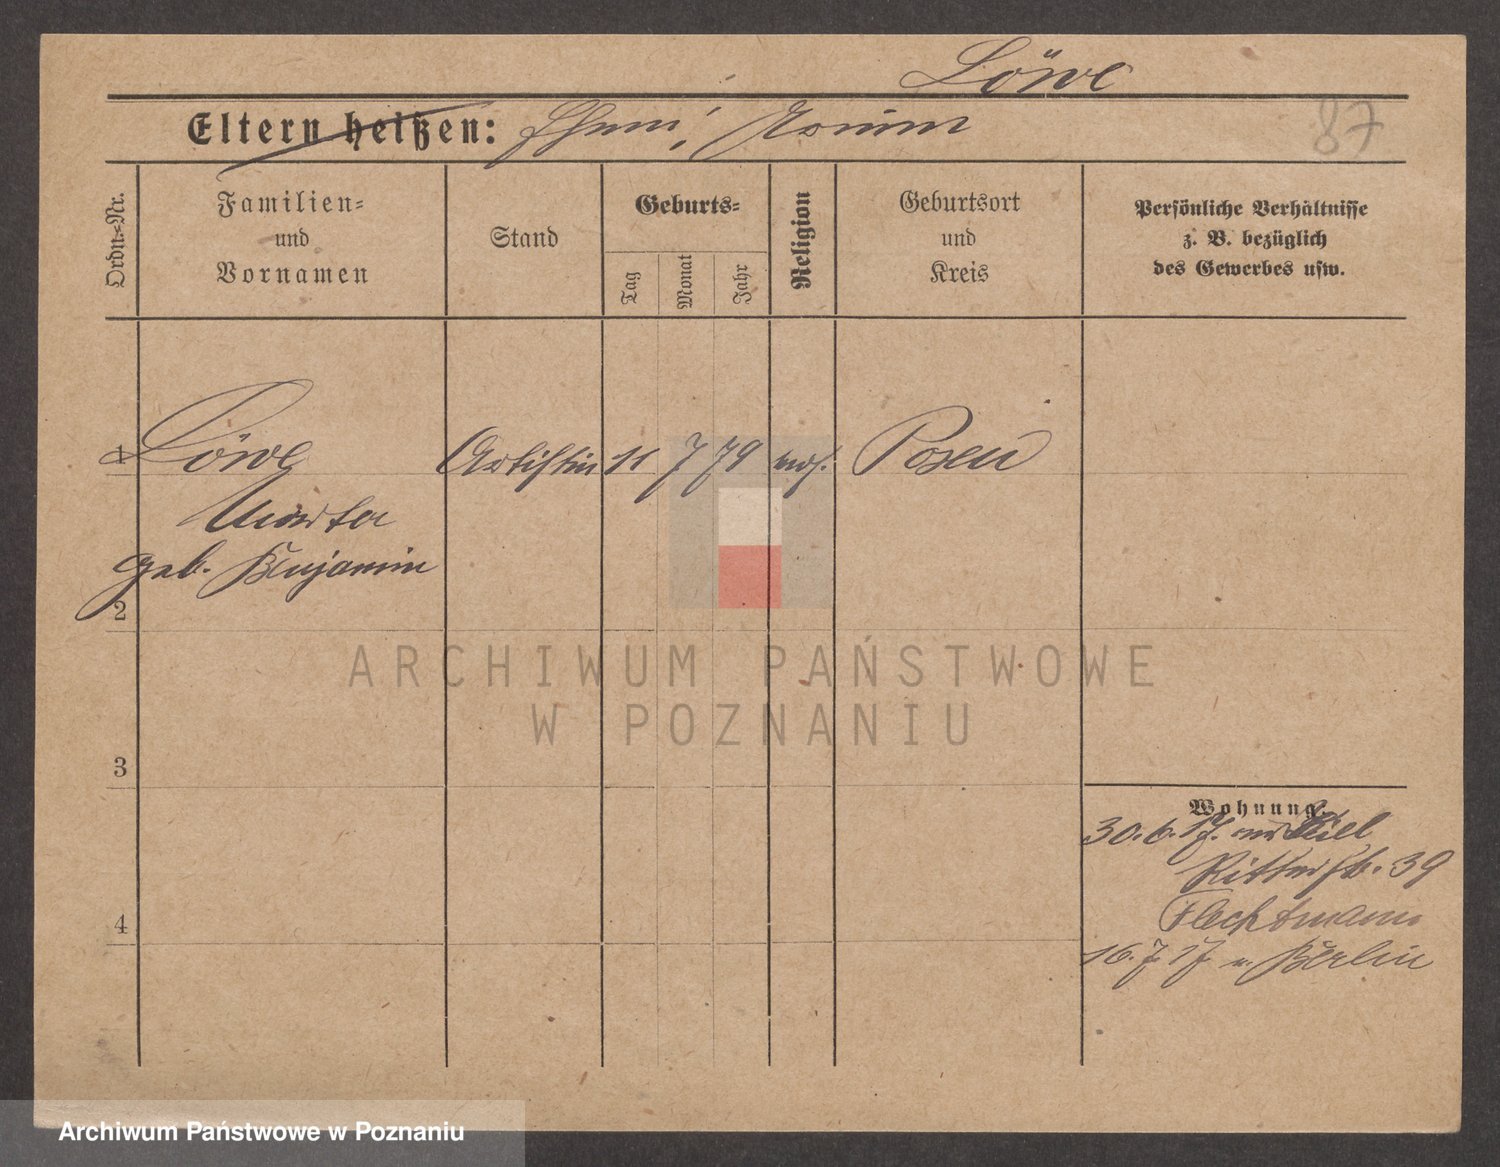 Löwe
Eltern heißen: Ehem:
87
Ordn.-Nr.
Familien-
und
Vornamen
Stand
Geburts-
Tag
Monat
Jahr
Religion
Geburtsort
und
Kreis
Persönliche Verhältnisse
z. B. bezüglich
des Gewerbes usw.
1 Löwe Artistin 11 7 79 mos. Posen
Martha
geb. Benjamin
2
3
4
Wohnung.
30.6.17. Kiel
Ritterstr. 39
Flechtmann
16.7.17 n. Berlin
ARCHIWUM PAŃSTWOWE
W POZNANIU
Archiwum Państwowe w Poznaniu